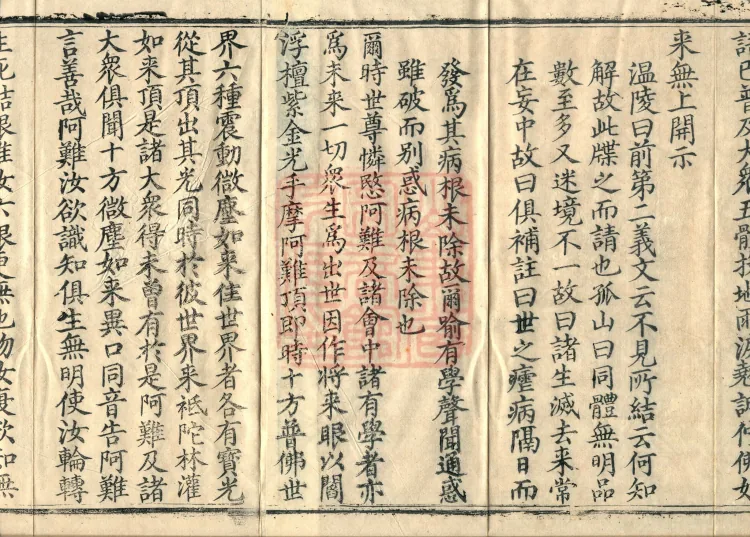 已並及大衆五體投地雨淚翹誠佇佛如
来無上開示
温陵曰前第二義文云不見所結云何知
解故此牒之而請也孤山曰同體無明品
數至多又迷境不一故曰諸生滅去来常
在妄中故曰俱補註曰世之瘧病隔日而
發爲其病根未除故爾喻有學聲聞通惑
雖破而別惑病根未除也
爾時世尊憐愍阿難及諸會中諸有學者亦
爲未来一切衆生爲出世因作將来眼以閻
浮檀紫金光手摩阿難頂即時十方普佛世
界六種震動微塵如来住世界者各有寶光
從其頂出其光同時於彼世界来祇陀林灌
如来頂是諸大衆得未曾有於是阿難及諸
大衆俱聞十方微塵如来異口同音告阿難
言善哉阿難汝欲識知俱生無明使汝輪轉
生死結根唯汝六根更無他物汝復欲知無